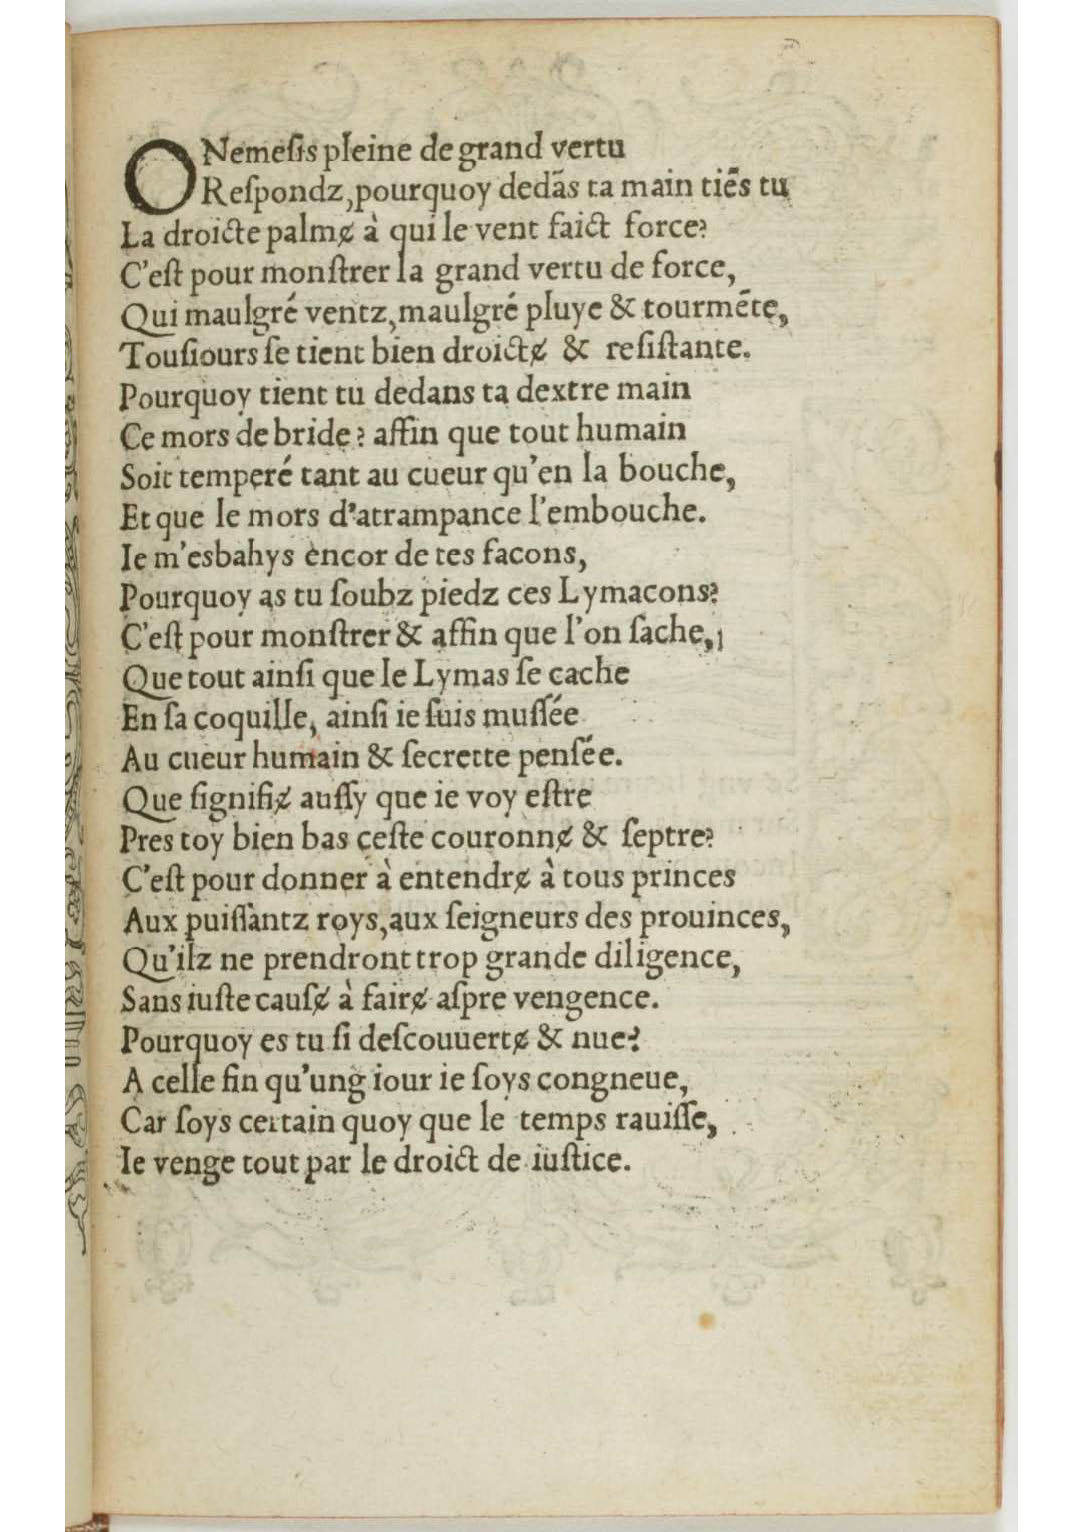 O Nemeſis pleine de grand vertu
Reſpondz, pourquoy dedãs ta main tiẽs tu
La droicte palmɇ à qui le vent faict force?
C'eſt pour monſtrer la grand vertu de force,
Qui maulgré ventz, maulgré pluye & tourmẽte,
Touſiours ſe tient bien droictɇ & reſiſtante.
Pourquoy tient tu dedans ta dextre main
Ce mors de bride? affin que tout humain
Soit temperé tant au cueur qu'en la bouche,
Et que le mors d'atrampance l'embouche.
Ie m'esbahys encor de tes facons,
Pourquoy as tu ſoubz piedz ces Lymacons?
C'eſt pour monſtrer & affin que l'on ſache,
Que tout ainſi que le Lymas ſe cache
En ſa coquille, ainſi ie ſuis muſſée
Au cueur humain & ſecrette penſée.
Que ſignifiɇ auſſy que ie voy eſtre
Pres toy bien bas ceſte couronnɇ & ſeptre?
C'eſt pour donner à entendrɇ à tous princes
Aux puiſſantz roys, aux ſeigneurs des prouinces,
Qu'ilz ne prendront trop grande diligence,
Sans iuſte cauſɇ à fairɇ aſpre vengence.
Pourquoy es tu ſi deſcouuertɇ & nue?
A celle fin qu'ung iour ie ſoys congneue,
Car ſoys certain quoy que le temps rauiſſe,
Ie venge tout par le droict de iuſtice.